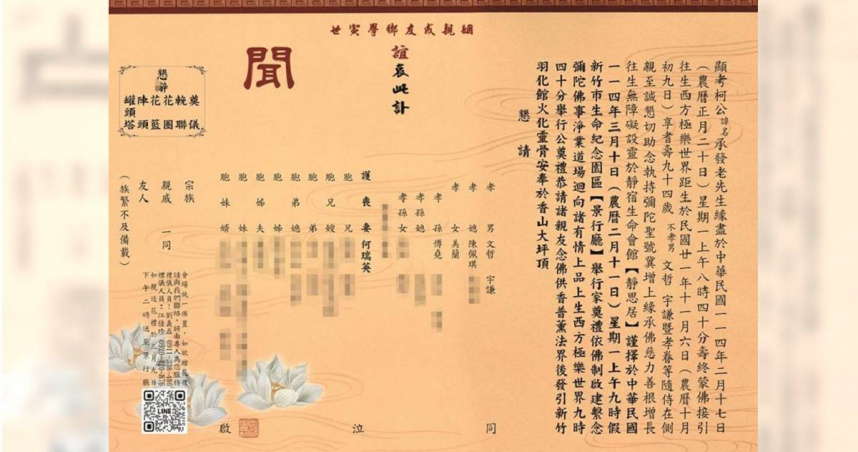 姻親戚友鄉學寅世
顯考柯公諱名承發老先生緣盡於中華民國一一四年二月十七日
（農曆正月二十日）星期一上午八時四十分壽終蒙佛接引
往生西方極樂世界距生於民國廿一年十一月六日（農曆十月
初九日）享耆壽九十四歲 不孝男 文哲 宇謙暨孝眷等隨侍在側
親至誠懇切助念執持彌陀聖號冀增上緣承佛慈力善根增長
往生無障礙設靈於靜宿生命會館【靜思居】謹擇於中華民國
一一四年三月十日（農曆二月十一日）星期一上午九時假
新竹市生命紀念園區【景行廳】舉行家奠禮依佛制啟建繫念
彌陀佛事淨業道場迴向諸有情上品上生西方極樂世界九時
四十分舉行公奠禮恭請諸親友念佛供香普薰法界後發引新竹
羽化館火化靈骨安奉於香山大坪頂
懇請
誼哀此訃
聞
懇辭
奠儀
輓聯
花圈
花籃
陣頭
罐頭塔
孝男 文哲 宇謙
孝媳 陳佩琪
孝女 美蘭
孝孫 傅堯
孝孫媳
孝孫女
護喪妻 何瑞英
胞兄
胞兄嫂
胞弟
胞弟媳
胞姊
胞姊夫
胞妹婿
胞妹
宗族
親戚 一同
友人
（族繁不及備載）
同
泣
啟
LINE